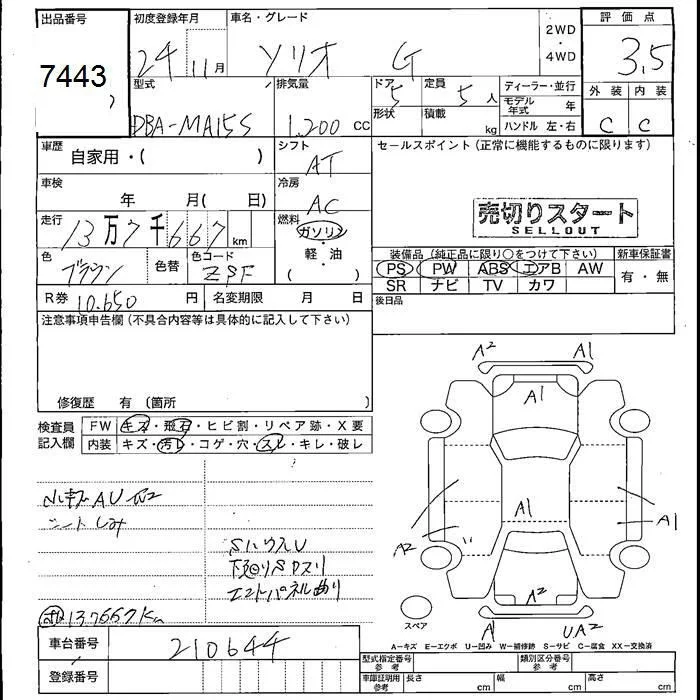 出品番号
7443
初度登録年月
24 11月
車名・グレード
ソリオ G
2WD
・
4WD
評価点
3.5
外装 内装
C C
型式
DBA-MA15S
排気量
1.200 cc
ドア
5
形状
定員
5人
積載
kg
ディーラー・並行
モデル年式 年
ハンドル 左・右
車歴
自家用・( )
シフト
AT
車検
年 月( 日)
冷房
AC
走行
13万7千667km
燃料
ガソリン
・
軽・油
( )
色
ブラウン
色替
色コード
ZSF
R券 10.650円
名変期限 月 日
セールスポイント(正常に機能するものに限ります)
売切りスタート
SELLOUT
装備品(純正品に限り○をつけて下さい)
新車保証書
PS PW ABS エアB AW
SR ナビ TV カワ
有・無
後日品
注意事項申告欄(不具合内容等は具体的に記入して下さい)
修復歴 有(箇所 )
検査員記入欄
FW キズ・飛石・ヒビ割・リペア跡・X要
内装 キズ・汚れ・コゲ・穴・スレ・キレ・破レ
小キズAU
シートしみ
SハウスU
下廻りSPスリ
エンドパネル曲り
137667Km
A2 A1
A1
A1
A2
A1
A2
A1 UA2
スペア
A-キズ E-エクボ U-凹み W-補修跡 S-サビ C-腐食 XX-交換済
車台番号
210644
登録番号
型式指定番号 参考
類別区分番号 参考
車庫証明用 参考
長さ cm
幅 cm
高さ cm